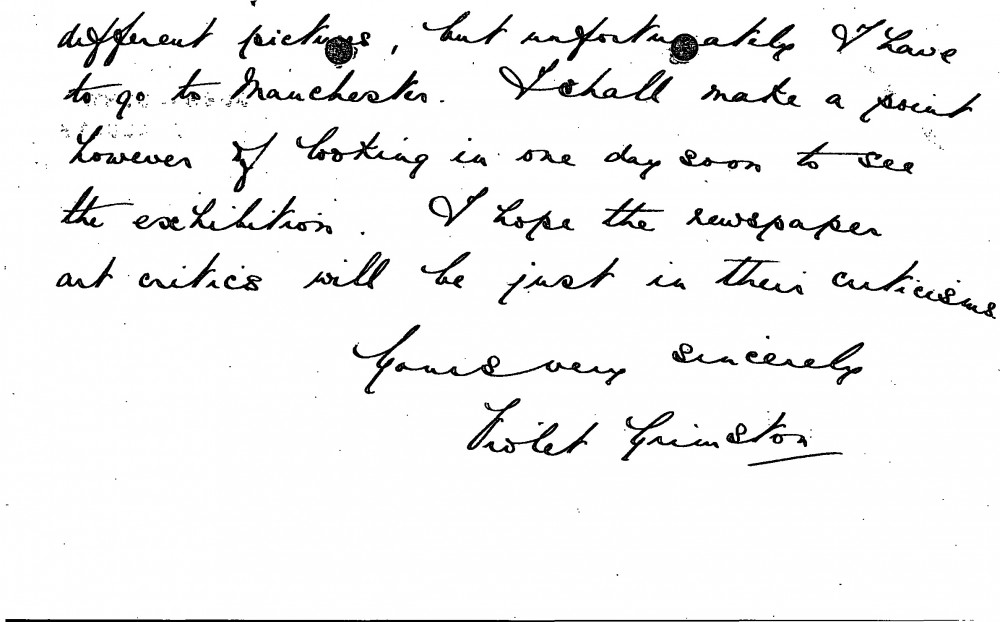 different pictures, but unfortunately I have
to go to Manchester. I shall make a point
however of looking in one day soon to see
the exhibition. I hope the newspaper
art critics will be just in their criticisms
Yours very sincerely
Violet Grimston